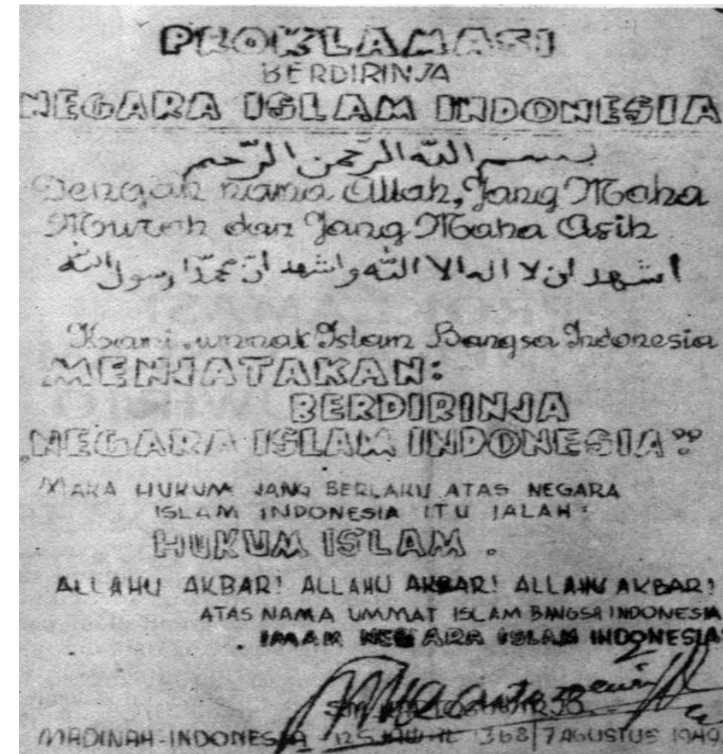 PROKLAMASI
BERDIRINJA
NEGARA ISLAM INDONESIA
بسم الله الرحمن الرحيم
Dengan nama Allah, Jang Maha
Murah dan Jang Maha Asih
اشهد ان لا اله الا الله واشهد ان محمدا رسول الله
Kami, ummat Islam Bangsa Indonesia
MENJATAKAN:
BERDIRINJA
„NEGARA ISLAM INDONESIA"
MAKA HUKUM JANG BERLAKU ATAS NEGARA
ISLAM INDONESIA ITU IALAH:
HUKUM ISLAM.
ALLAHU AKBAR! ALLAHU AKBAR! ALLAHU AKBAR!
ATAS NAMA UMMAT ISLAM BANGSA INDONESIA
IMAM NEGARA ISLAM INDONESIA
MADINAH-INDONESIA 12 SJAWAL 1368 | 7 AGUSTUS 1949